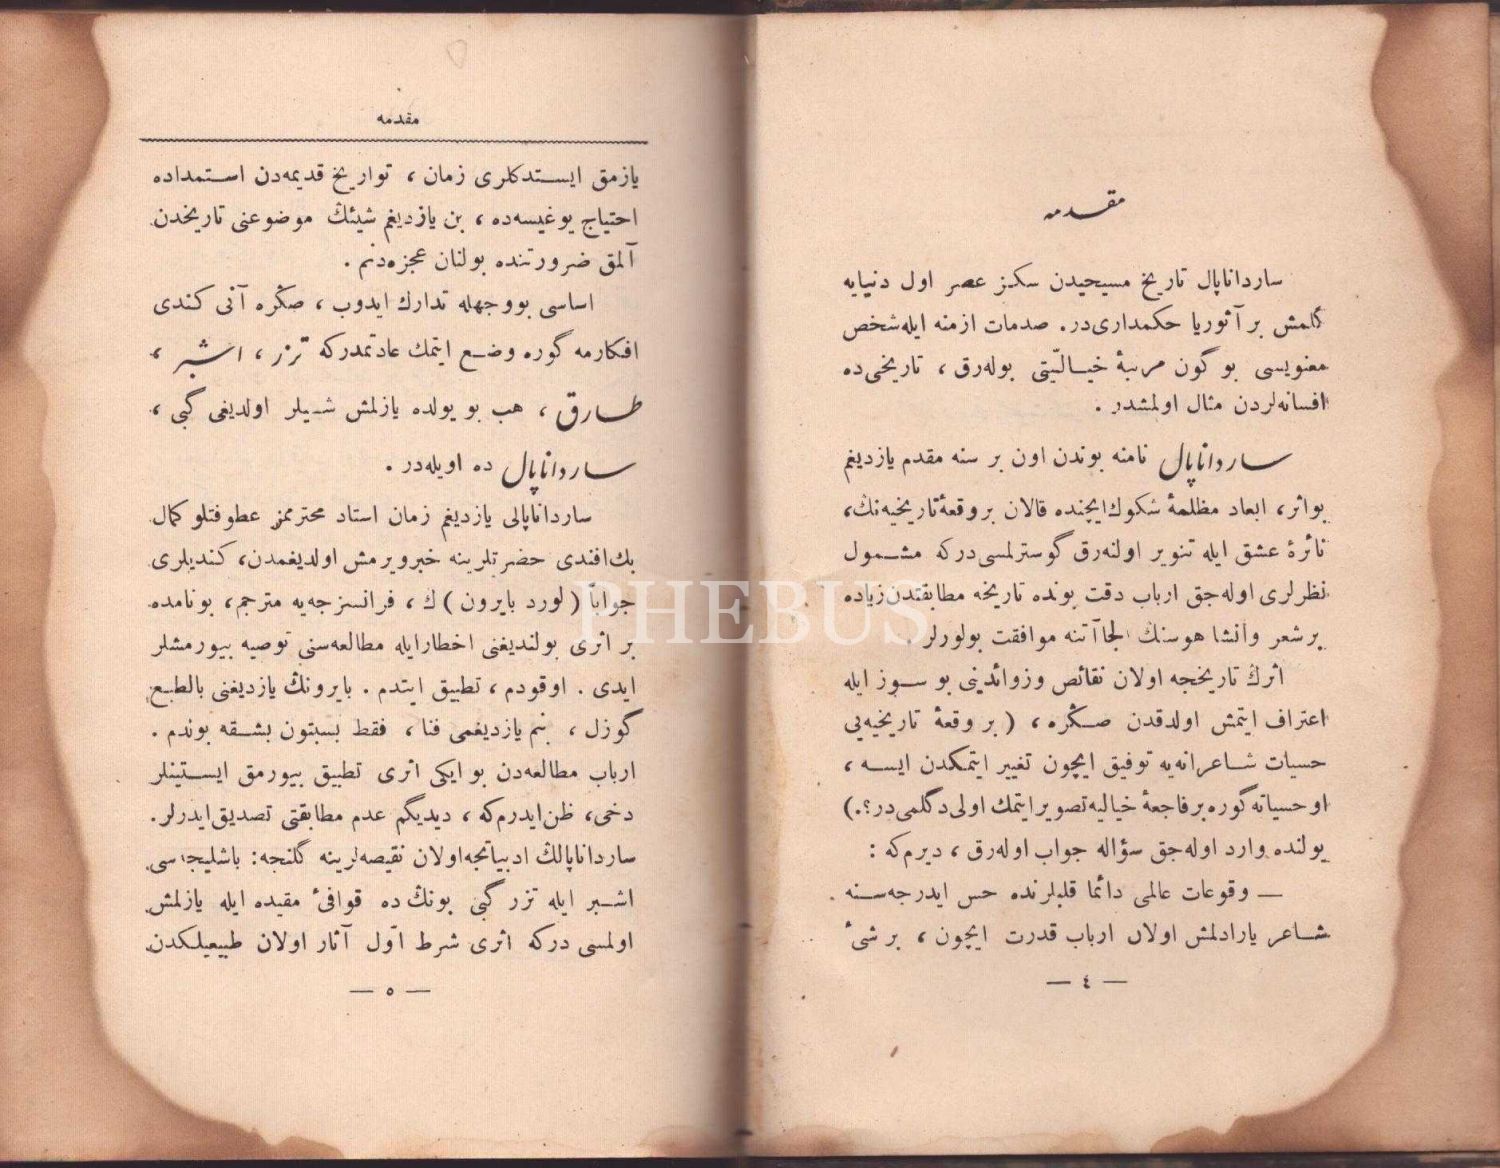 مقدمه
سارداناپال تاريخ مسيحيدن سكز عصر اول دنيايه
گلمش بر آثوريا حكمدارى‌در. صدمات ازمنه ايله شخص
معنويسى بو گون مرتبهٔ خياليّتى بوله‌رق ، تاريخى‌ده
افسانه‌لردن مثال اولمشدر .
سارداناپال نامنه بوندن اون بر سنه مقدم يازديغم
بواثر، ابعاد مظلمهٔ شكوك ايچنده قالان بروقعهٔ تاريخيه‌نڭ،
نائرهٔ عشق ايله تنوير اولنه‌رق گوسترلمسى‌دركه مشمول
نظرلرى اوله‌جق ارباب دقت بونده تاريخه مطابقتدن زياده
برشعر وانشا هوسنڭ الجاآتنه موافقت بولورلر .
اثرڭ تاريخجه اولان نقائص وزوائدينى بو سوز ايله
اعتراف ايتمش اولدقدن صڭره ، ( بر وقعهٔ تاريخيه‌يى
حسيات شاعرانه‌يه توفيق ايچون تغيير ايتمكدن ايسه ،
اوحسياته گوره برفاجعهٔ خياليه تصوير ايتمك اولى دگلمى‌در؟.)
يولنده وارد اوله‌جق سؤاله جواب اوله‌رق ، ديرم‌كه :
— وقوعات عالمى دائما قلبلرنده حس ايدرجه‌سنه
شاعر يارادلمش اولان ارباب قدرت ايچون ، بر شىٔ
— ٤ —
مقدمه
يازمق ايستدكلرى زمان ، تواريخ قديمه‌دن استمداده
احتياج يوغيسه‌ده ، بن يازديغم شيئڭ موضوعنى تاريخدن
آلمق ضرورتنده بولنان عجزه‌دنم .
اساسى بووجهله تدارك ايدوب ، صڭره آنى كندى
افكارمه گوره وضع ايتمك عادتمدركه تزر ، اشبر ،
طارق ، هب بو يولده يازلمش شيلر اولديغى گبى ،
سارداناپال ده اويله‌در .
ساردانا‌پالى يازديغم زمان استاد محترممز عطوفتلو كمال
بك افندى حضرتلرينه خبرويرمش اولديغمدن، كنديلرى
جواباً ( لورد بايرون ) ك ، فرانسزجه‌يه مترجم، بونامده
بر اثرى بولنديغنى اخطارايله مطالعه‌سنى توصيه بيورمشلر
ايدى . اوقودم ، تطبيق ايتدم . بايرونڭ يازديغنى بالطبع
گوزل ، بنم يازديغمى فنا ، فقط بسبتون بشقه بوندم .
ارباب مطالعه‌دن بو ايكى اثرى تطبيق بيورمق ايستينلر
دخى، ظن ايدرم‌كه ، ديديگم عدم مطابقتى تصديق ايدرلر.
ساردانا‌پالڭ ادبياتجه اولان نقيصه‌لرينه گلنجه: باشليجه‌سى
اشبر ايله تزر گبى بونڭ ده قوافىٔ مقيده ايله يازلمش
اولمسى دركه اثرى شرط اوّل آثار اولان طبيعيلكدن
— ٥ —